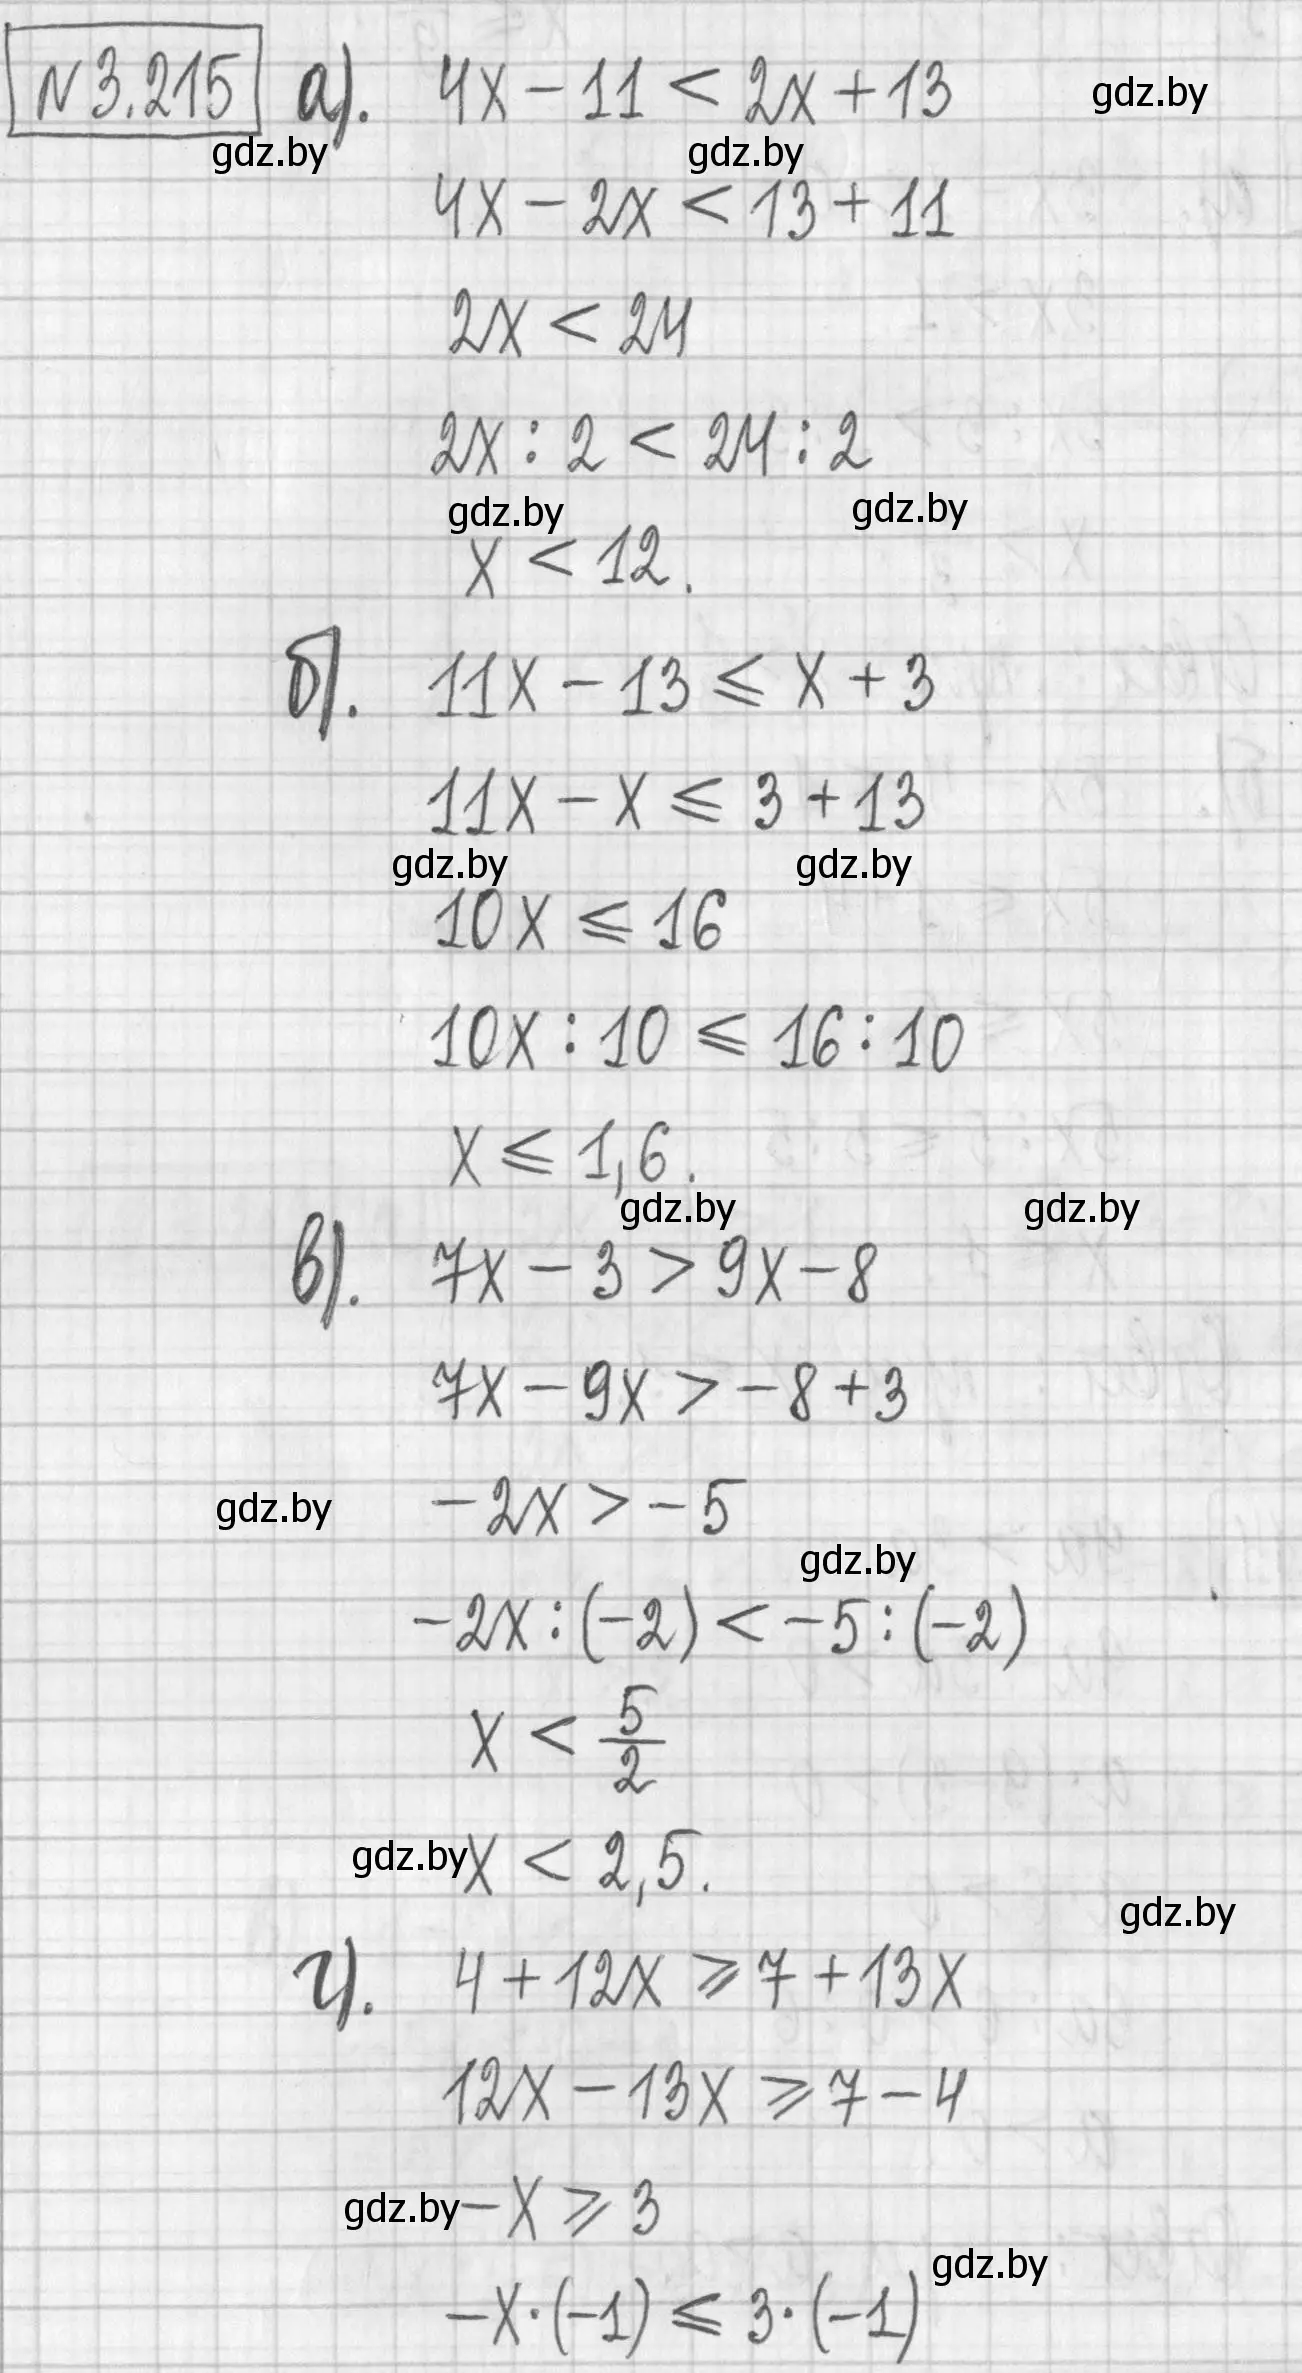 №3.215 а). 4x - 11 < 2x + 13 gdz.by
gdz.by gdz.by
4x - 2x < 13 + 11
2x < 24
2x : 2 < 24 : 2
gdz.by gdz.by
x < 12.
б). 11x - 13 ⩽ x + 3
11x - x ⩽ 3 + 13
gdz.by gdz.by
10x ⩽ 16
10x : 10 ⩽ 16 : 10
x ⩽ 1,6.
gdz.by gdz.by
в). 7x - 3 > 9x - 8
7x - 9x > -8 + 3
gdz.by -2x > -5
gdz.by
-2x : (-2) < -5 : (-2)
x < 5/2
gdz.by x < 2,5.
gdz.by
г). 4 + 12x ⩾ 7 + 13x
12x - 13x ⩾ 7 - 4
gdz.by -x ⩾ 3
gdz.by
-x · (-1) ⩽ 3 · (-1)